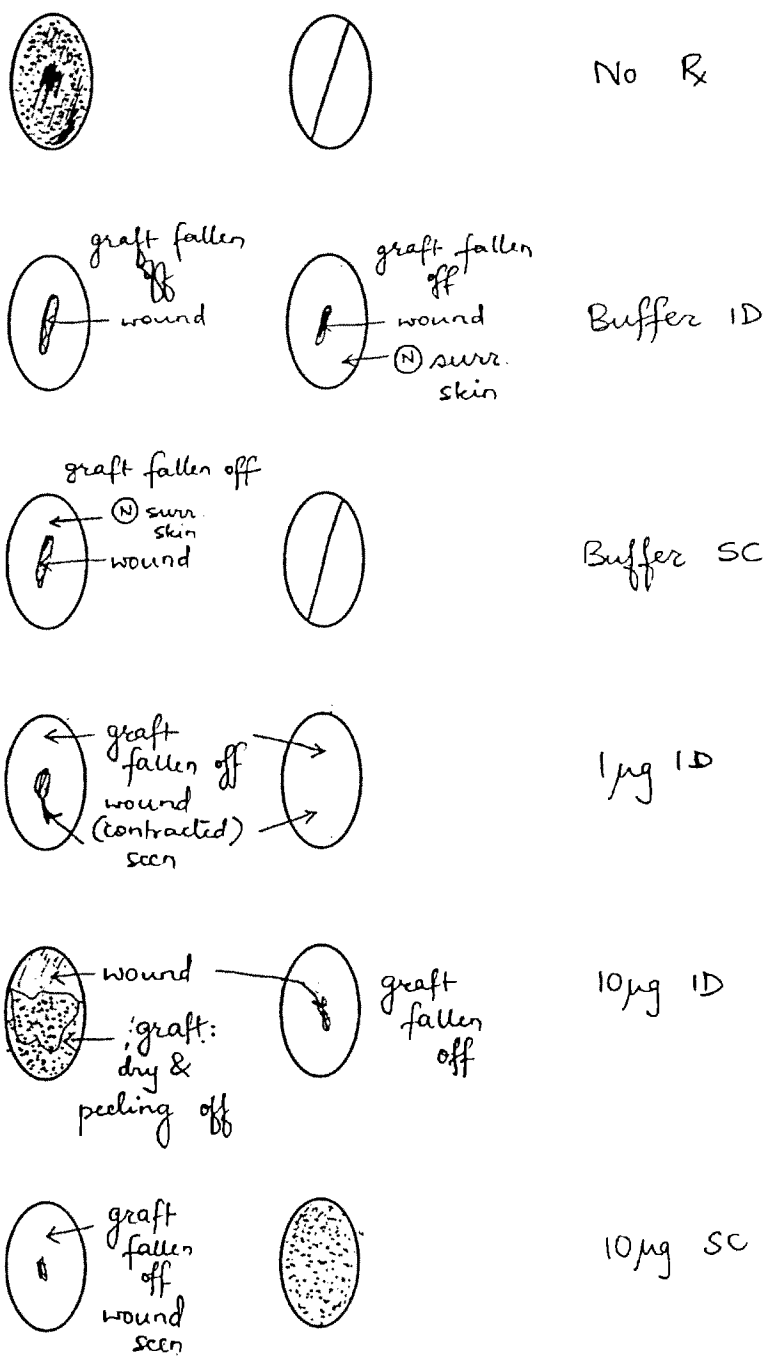 No ℞
graft fallen
off
wound
graft fallen
off
wound
Ⓝ surr.
skin
Buffer ID
graft fallen off
Ⓝ surr.
skin
wound
Buffer SC
graft
fallen off
wound
(contracted)
seen
1 µg ID
wound
graft:
dry &
peeling off
graft
fallen
off
10 µg ID
graft
fallen
off
wound
seen
10 µg SC